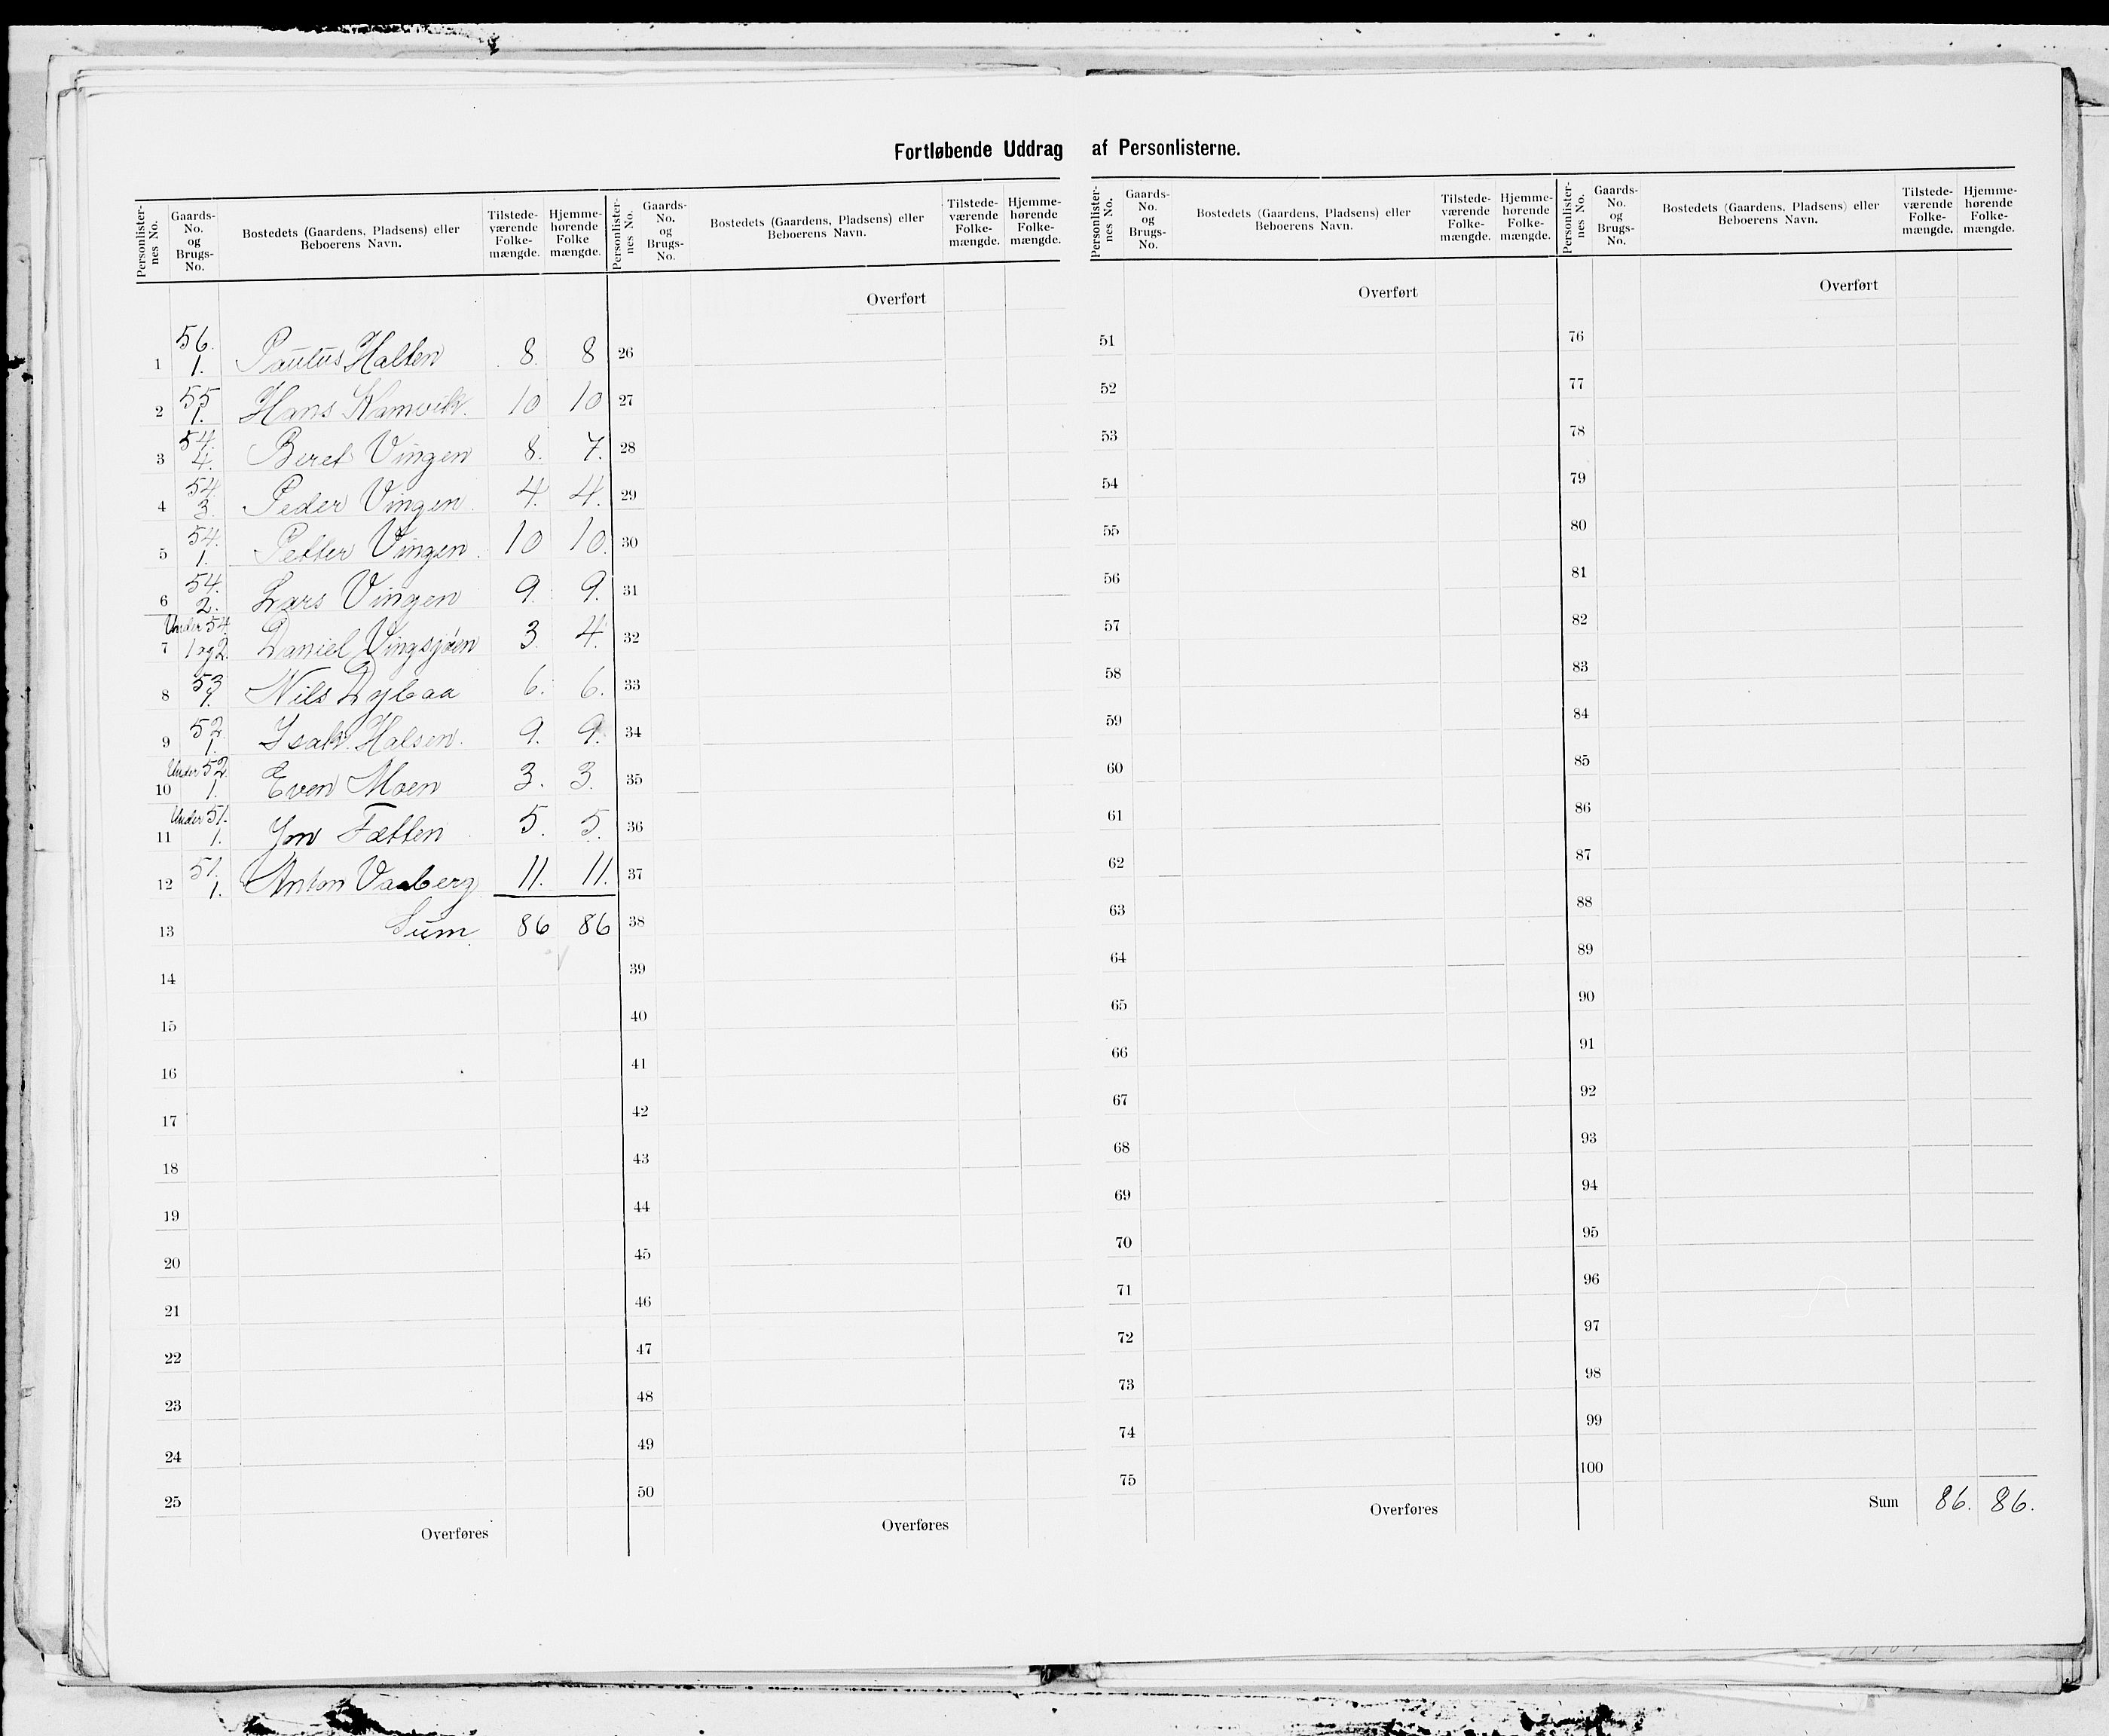 Fortløbende Uddrag af Personlisterne.
Personlister-nes No. | Gaards-No. og Brugs-No. | Bostedets (Gaardens, Pladsens) eller Beboerens Navn. | Tilstede-værende Folke-mængde. | Hjemme-hørende Folke mængde.
Personlister-nes No. | Gaards-No. og Brugs-No. | Bostedets (Gaardens, Pladsens) eller Beboerens Navn. | Tilstede-værende Folke-mængde. | Hjemme-hørende Folke-mængde.
Personlister-nes No. | Gaards-No. og Brugs-No. | Bostedets (Gaardens, Pladsens) eller Beboerens Navn. | Tilstede-værende Folke-mængde. | Hjemme-hørende Folke-mængde.
Personlister-nes No. | Gaards-No. og Brugs-No. | Bostedets (Gaardens, Pladsens) eller Beboerens Navn. | Tilstede-værende Folke-mængde. | Hjemme-hørende Folke-mængde.
1 56. 1. Paulus Halten 8. 8
2 55 1. Hans Kamvik. 10 10
3 54. 4. Beret Vingen 8. 7.
4 54. 3. Peder Vingen. 4. 4.
5 54. 1. Petter Vingen. 10 10.
6 54. 2. Lars Vingen 9. 9.
7 Under 54. 1 og 2. Daniel Vingsjøen 3. 4.
8 53 1. Nils Dybaa 6. 6.
9 52. 1. Isak Halsen. 9. 9.
10 Under 52. 1. Even Moen 3. 3.
11 Under 51. 1. Jon Fætten 5. 5.
12 51. 1. Anton Vaaberg 11. 11.
13 Sum. 86 86
14
15
16
17
18
19
20
21
22
23
24
25
Overføres
Overført
26
27
28
29
30
31
32
33
34
35
36
37
38
39
40
41
42
43
44
45
46
47
48
49
50
Overføres
Overført
51
52
53
54
55
56
57
58
59
60
61
62
63
64
65
66
67
68
69
70
71
72
73
74
75
Overføres
Overført
76
77
78
79
80
81
82
83
84
85
86
87
88
89
90
91
92
93
94
95
96
97
98
99
100
Sum 86. 86.